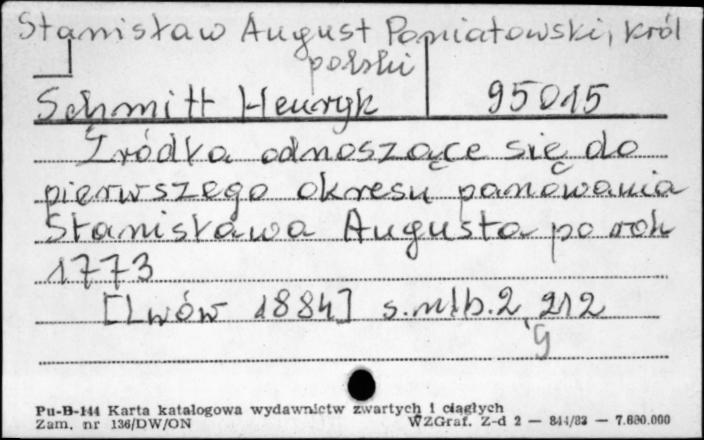 Stanisław August Poniatowski, król
polski
Schmitt Henryk 95015
Źródła odnoszące się do
pierwszego okresu panowania
Stanisława Augusta po rok
1773
[Lwów 1884] s.nlb.2, 212
g
Pu-B-144 Karta katalogowa wydawnictw zwartych i ciągłych
Zam. nr 136/DW/ON WZGraf. Z-d 2 — 844/83 — 7.600.000